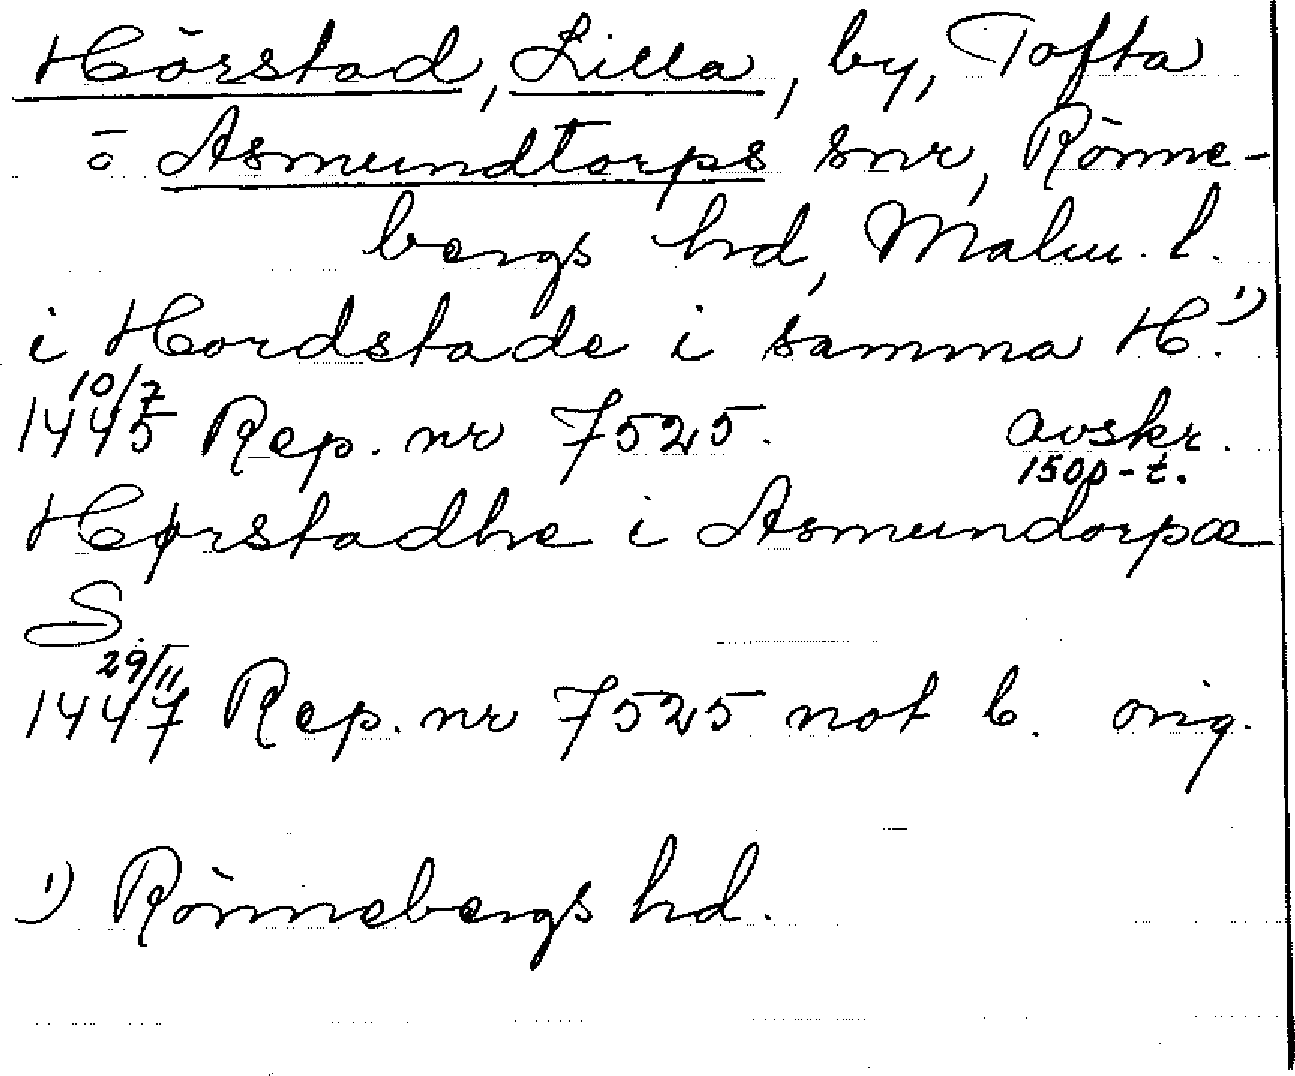 Hörstad, Lilla, by, Tofta
o Asmundtorps snr, Rönne-
bergs hd, Malm. l.
i Hordstade i samma H.¹⁾
1445 10/7 Rep. nr 7525. avskr.
1500-t.
Hørstadhe i Asmundorpæ
S
1447 29/11 Rep. nr 7525 not b. orig.
¹⁾ Rönnebergs hd.